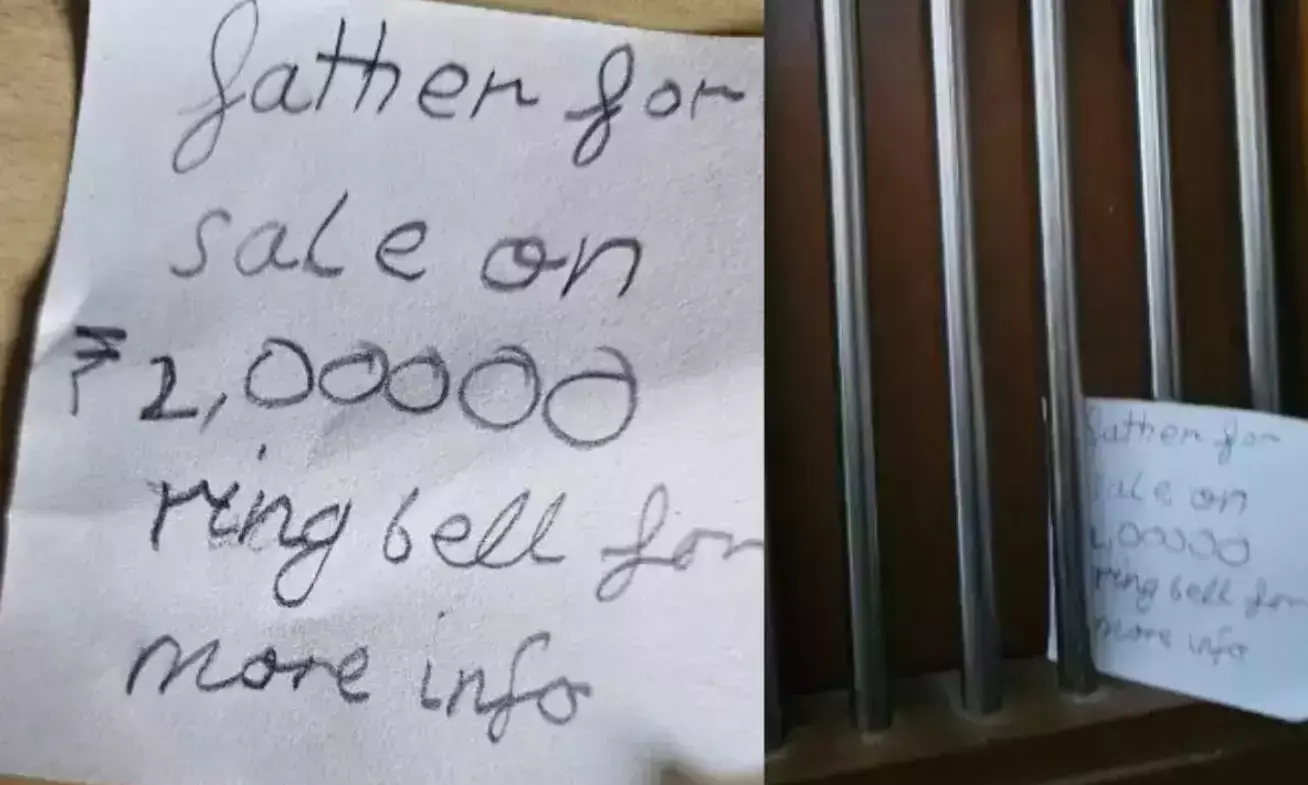 father for
sale on
₹2,00000
ring bell for
more info
father for
sale on
2,00000
ring bell for
more info